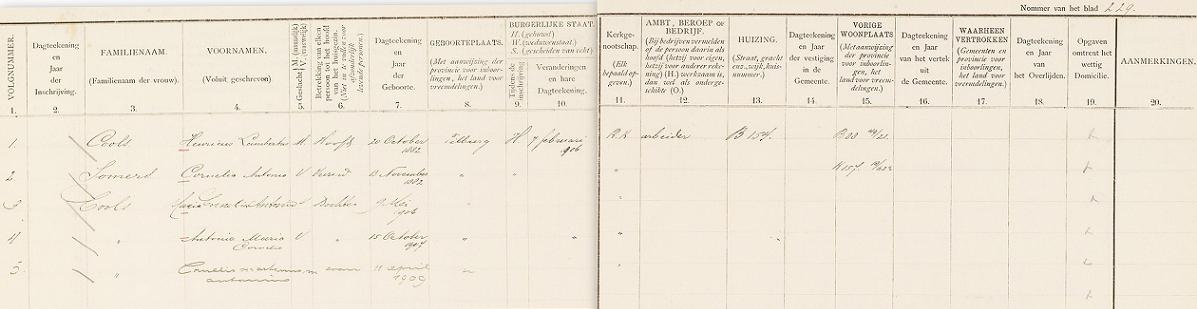 Nommer van het blad 229.
VOLGNUMMER.
1.
Dagteekening
en
Jaar
der
Inschrijving.
2.
FAMILIENAAM.
(Familienaam der vrouw).
3.
VOORNAMEN.
(Voluit geschreven)
4.
Geslacht M. (mannelijk)
V. (vrouwelijk)
5.
Betrekking van elken
persoon tot het hoofd
van het huisgezin.
(Niet in te vullen voor
afzonderlijk
levende personen.)
6.
Dagteekening
en
Jaar
der
Geboorte.
7.
GEBOORTEPLAATS.
(Met aanwijzing der
provincie voor inboor-
lingen, het land voor
vreemdelingen.)
8.
BURGERLIJKE STAAT.
H. (gehuwd)
W. (weduwenstaat.)
S. (gescheiden van echt)
Tijdens de
inschrijving
9.
Veranderingen
en hare
Dagteekening.
10.
Kerkge-
nootschap.
(Elk
bepaald op-
geven.)
11.
AMBT, BEROEP OF
BEDRIJF.
(Bij bedrijven vermelden
of de persoon daarin als
hoofd (hetzij voor eigen,
hetzij voor anderer reke-
ning) (H.) werkzaam is,
dan wel als onderge-
schikte (O.)
12.
HUIZING.
(Straat, gracht
enz., wijk, huis-
nummer.)
13.
Dagteekening
en Jaar
der vestiging
in de
Gemeente.
14.
VORIGE
WOONPLAATS.
(Met aanwijzing
der provincie
voor inboorlin-
gen, het
land voor vreem-
delingen.)
15.
Dagteekening
en Jaar
van het vertrek
uit
de Gemeente.
16.
WAARHEEN
VERTROKKEN
(Gemeenten en
provincie voor
inboorlingen,
het land voor
vreemdelingen.)
17.
Dagteekening
en Jaar
van
het Overlijden.
18.
Opgaven
omtrent het
wettig
Domicilie.
19.
AANMERKINGEN.
20.
1. Cools Henricus Lambertus M Hoofd 20 October 1882 Tilburg H 7 februari 1906 R.K arbeider B 157.
2 Somers Cornelia Antonia V Vrouw 13 November 1882 " "
3 Cools Maria Cornelia Antonia Dochter 9 Mei 1906 " "
4 " Antonia Maria Cornelia V " 15 October 1907 " " "
5 " Cornelis Martinus antonius m zoon 11 april 1909 " "